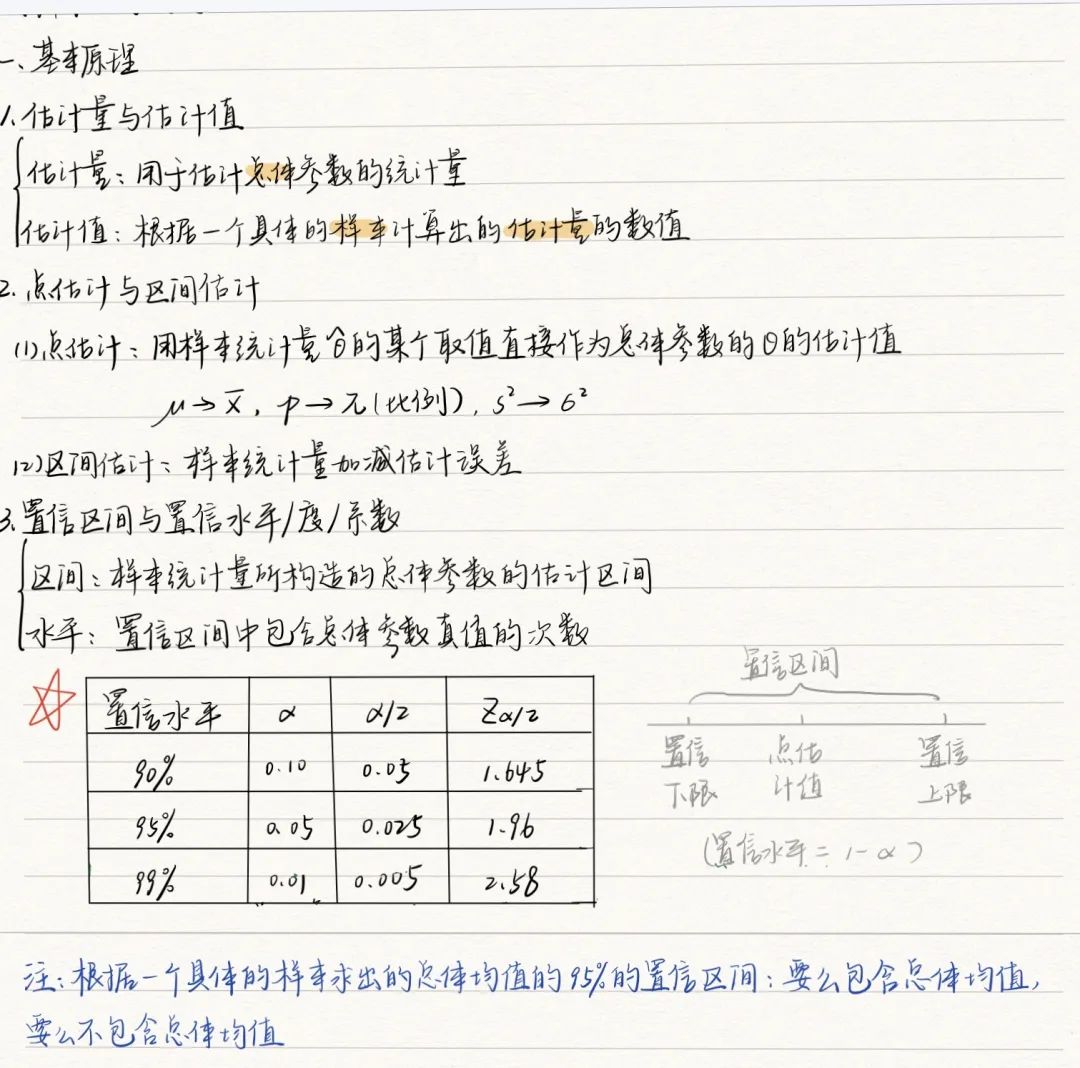 一、基本原理
1.估计量与估计值
估计量：用于估计总体参数的统计量
估计值：根据一个具体的样本计算出的估计量的数值
2.点估计与区间估计
(1)点估计：用样本统计量θ̂的某个取值直接作为总体参数的θ的估计值
μ→x̄，p→π(比例)，s²→σ²
(2)区间估计：样本统计量加减估计误差
3.置信区间与置信水平/度/系数
区间：样本统计量所构造的总体参数的估计区间
水平：置信区间中包含总体参数真值的次数
置信区间
置信水平 α α/2 Zα/2
90% 0.10 0.05 1.645
95% 0.05 0.025 1.96
99% 0.01 0.005 2.58
置信下限 点估计值 置信上限
(置信水平=1-α)
注：根据一个具体的样本求出的总体均值的95%的置信区间：要么包含总体均值，
要么不包含总体均值